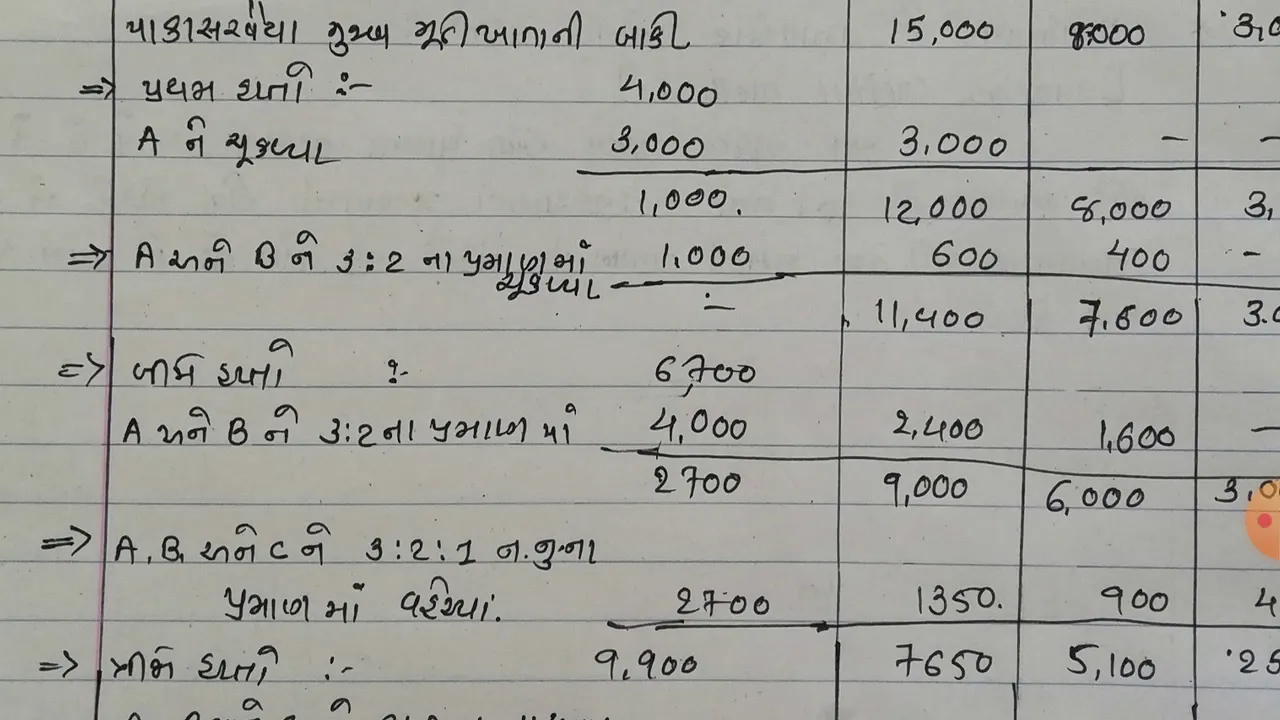 પાકાસરવૈયા મુજબ મૂડીખાતાની બાકી 15,000 8,000 3,0
⇒ પ્રથમ હપ્તો :- 4,000
A ને ચૂકવ્યા 3,000 3,000 - -
1,000. 12,000 8,000 3,
⇒ A અને B ને 3:2 ના પ્રમાણમાં 1,000 600 400 -
ચૂકવ્યા - 11,400 7,600 3.0
⇒ હપ્તો :- 6,700
A અને B ને 3:2 ના પ્રમાણ માં 4,000 2,400 1,600 -
2700 9,000 6,000 3,0
⇒ A, B, અને C ને 3:2:1 ન.નુ.ના
પ્રમાણ માં 2700 1350. 900 4
⇒ હપ્તો :- 9,900 7650 5,100 25